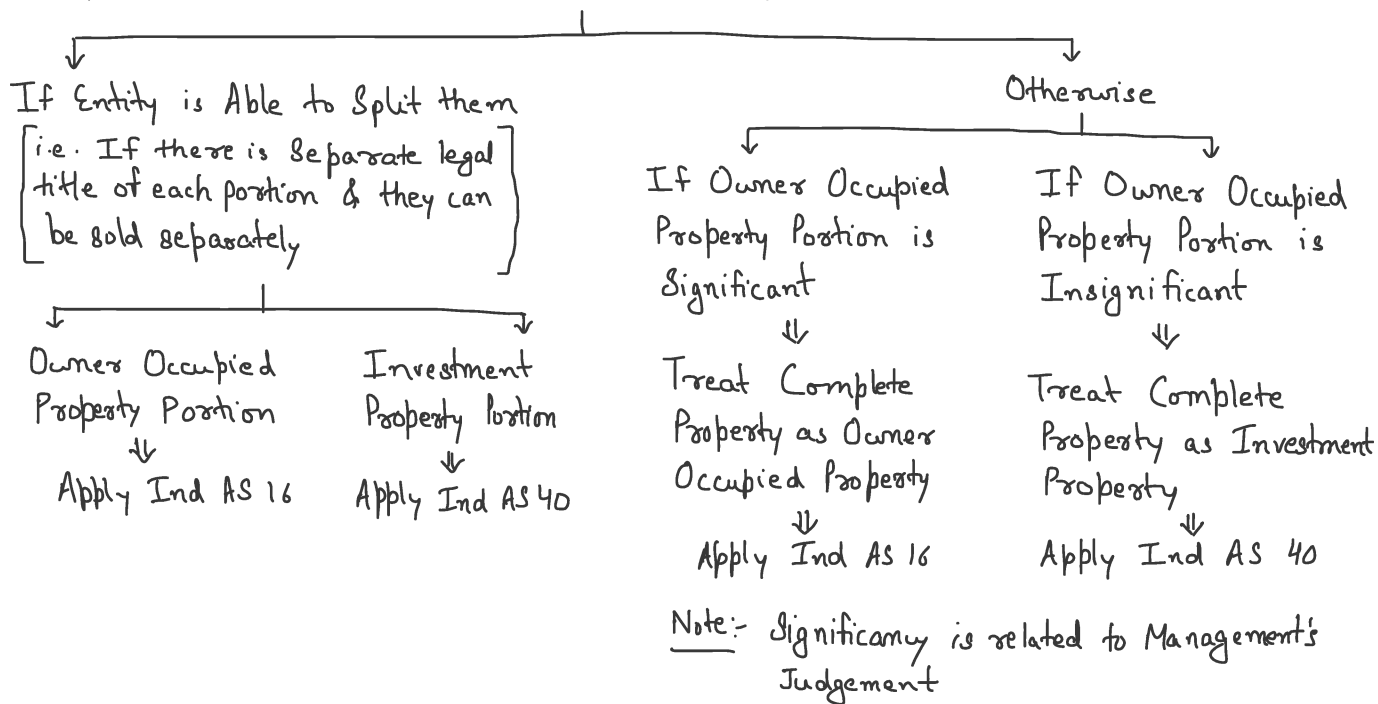 If Entity is Able to Split them
[i.e. If there is Separate legal
title of each portion & they can
be sold separately]
Owner Occupied
Property Portion
⇓
Apply Ind AS 16
Investment
Property Portion
⇓
Apply Ind AS 40
Otherwise
If Owner Occupied
Property Portion is
Significant
⇓
Treat Complete
Property as Owner
Occupied Property
⇓
Apply Ind AS 16
If Owner Occupied
Property Portion is
Insignificant
⇓
Treat Complete
Property as Investment
Property
⇓
Apply Ind AS 40
Note:- Significancy is related to Management's
Judgement